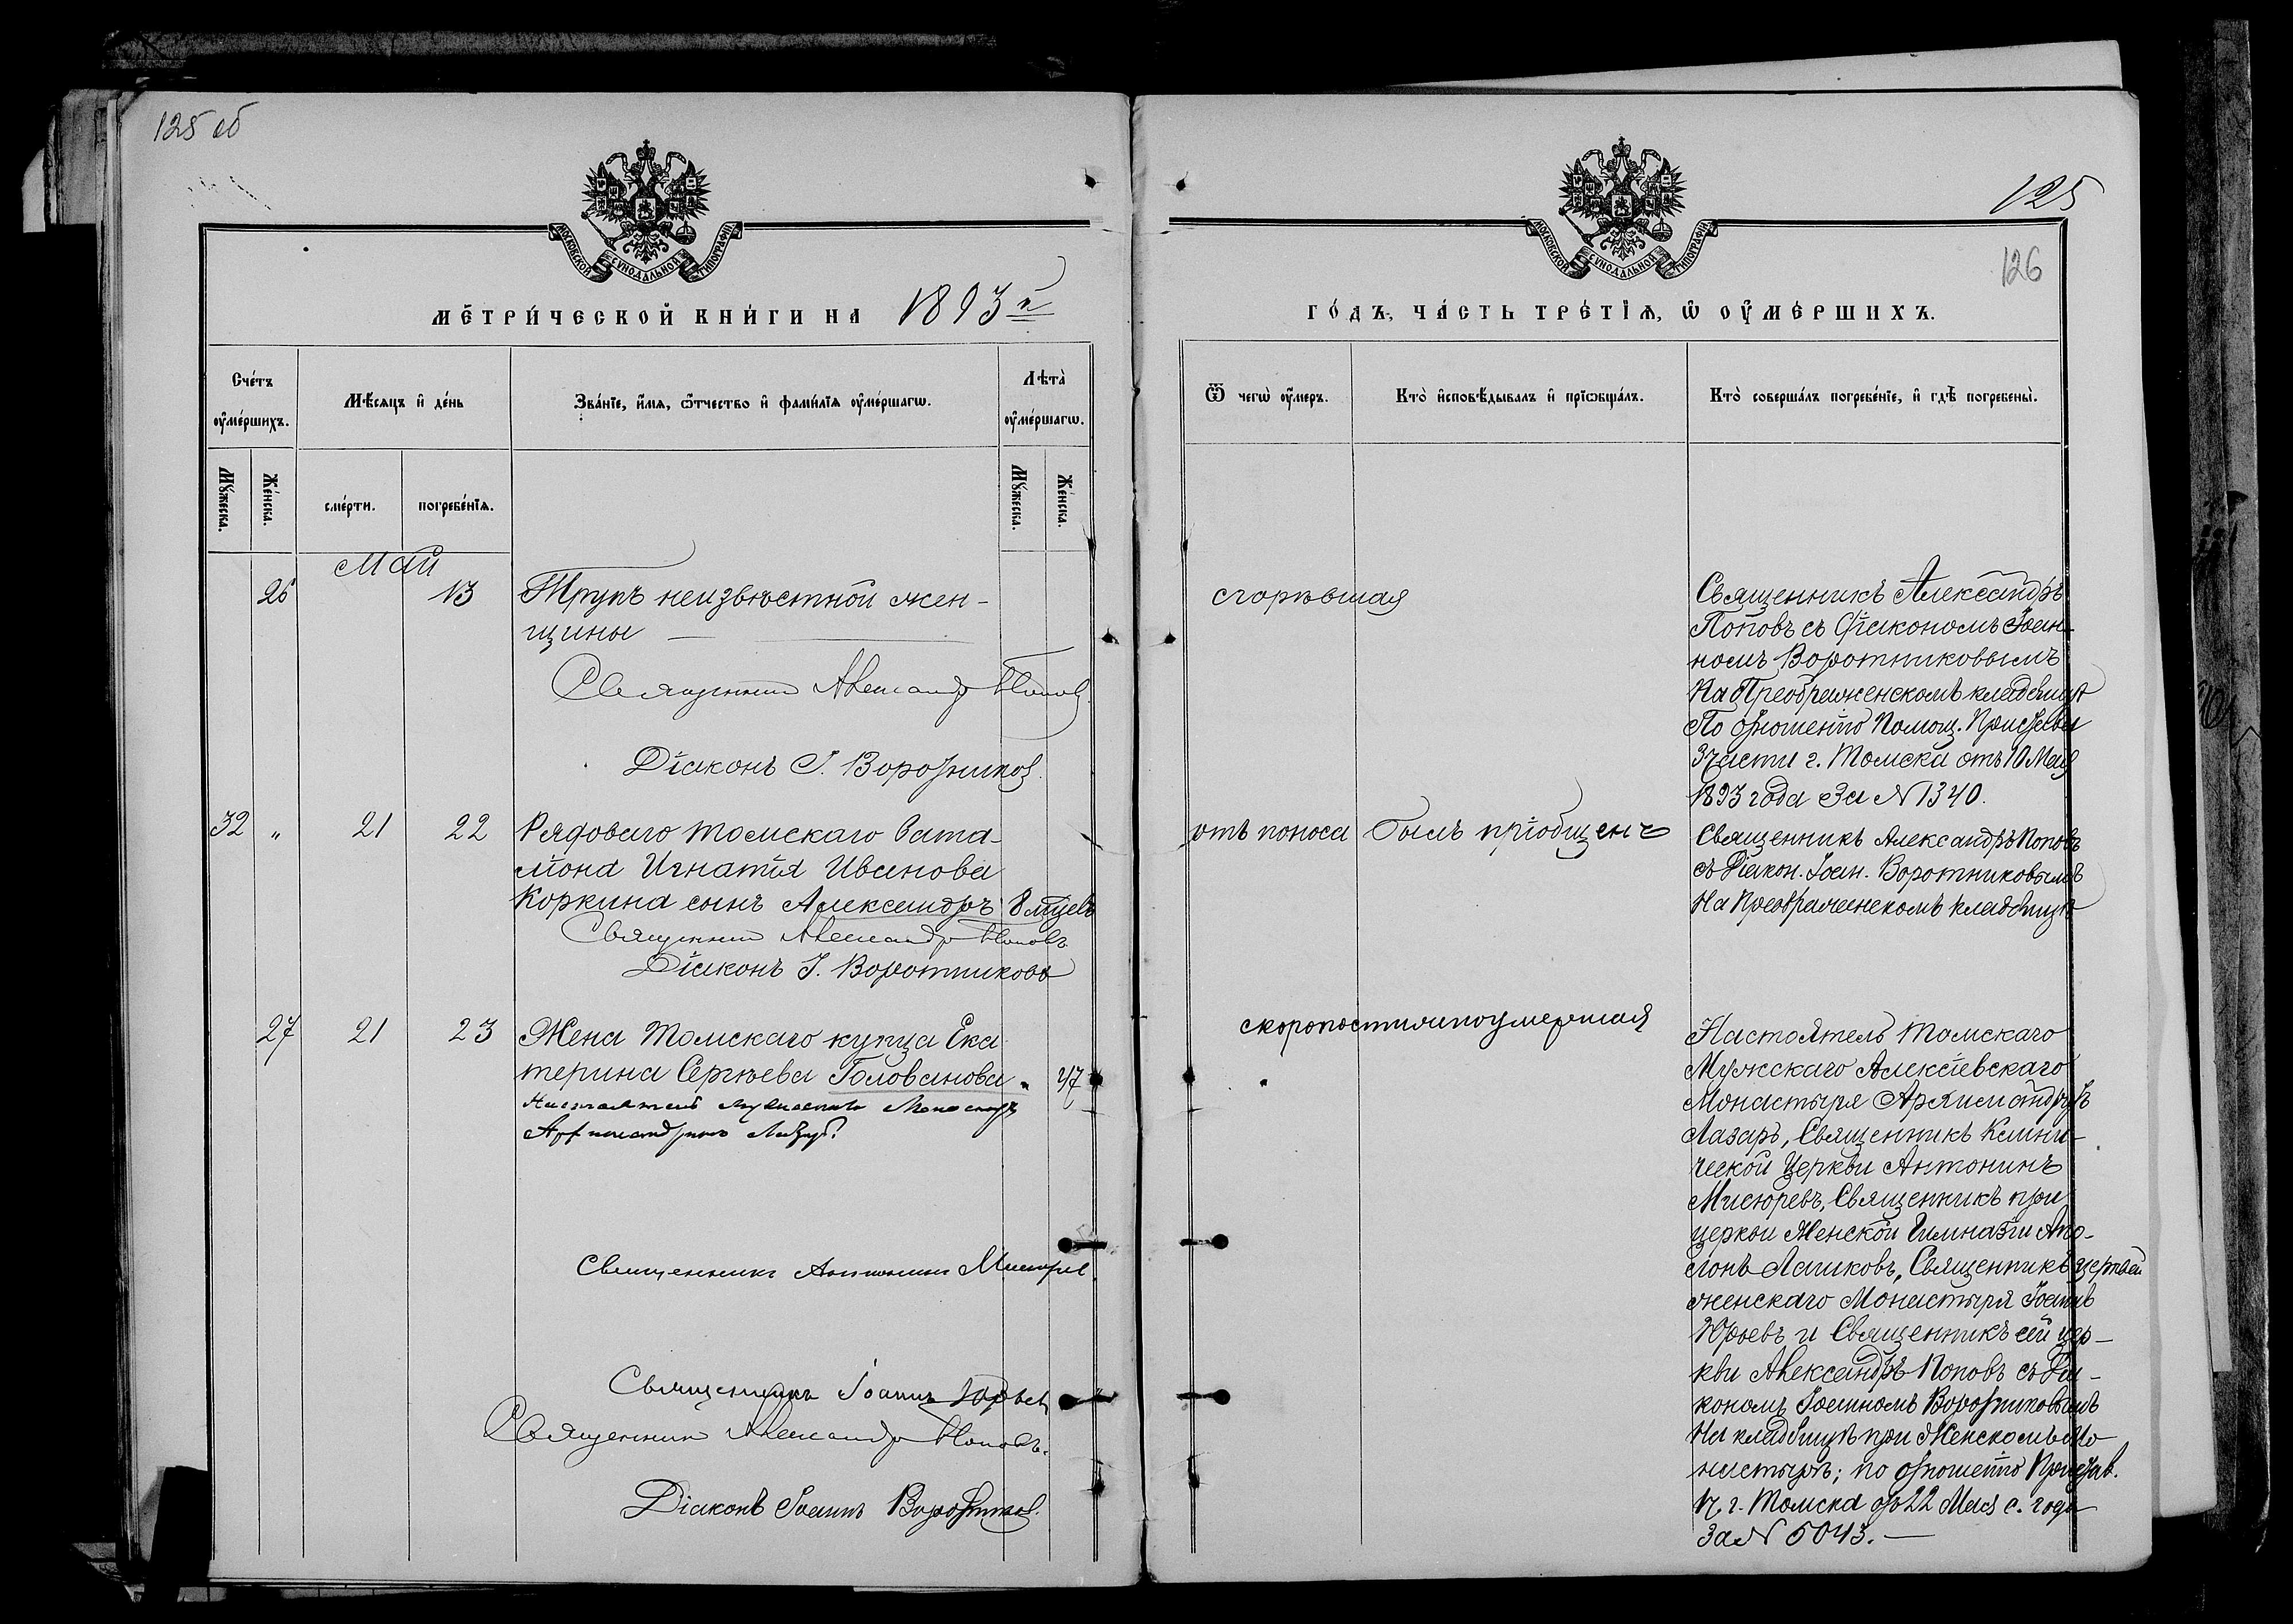 125 об
МОСКОВСКОЙ СѴНОДАЛЬНОЙ ТИПОГРАФІИ
МЕТРИ́ЧЕСКОЙ КНИ́ГИ НА 1893 й
Сче́тъ ᲂу҆ме́ршихъ.
Мѣ́сяцъ и҆ де́нь
Зва́нїе, и҆́мѧ, ѻ҆́тчество и҆ фами́лїѧ ᲂу҆ме́ршагѡ.
Лѣта̀ ᲂу҆ме́ршагѡ.
Мꙋ́жеска.
Же́нска.
сме́рти.
погребе́нїѧ.
Мꙋ́жеска.
Же́нска.
Май
26 13 Трупъ неизвѣстной жен-
щины —
Священникъ Александръ Поповъ
Діаконъ І. Воротниковъ.
32 „ 21 22 Рядоваго Томскаго бата-
ліона Игнатія Иванова
Коркина сынъ Александръ 8 мцевъ
Священникъ Александръ Поповъ
Діаконъ І. Воротниковъ
27 21 23 Жена Томскаго купца Ека-
терина Сергѣева Голованова. 47
Настоятель мужескаго Монастыря
Архимандритъ Лазарь.
Священникъ Антонинъ Мисюревъ.
Священникъ Іоаннъ Юрьевъ
Священникъ Александръ Поповъ.
Діаконъ Іоаннъ Воротниковъ.
125
126
МОСКОВСКОЙ СѴНОДАЛЬНОЙ ТИПОГРАФІИ
ГО́ДЪ, ЧА́СТЬ ТРЕ́ТЇѦ, Ѡ҆ ОУ҆МЕ́РШИХЪ.
Ѿ чегѡ̀ ᲂу҆́меръ.
Кто̀ и҆сповѣ́дывалъ и҆ прїѡбща́лъ.
Кто̀ соверша́лъ погребе́нїе, и҆ гдѣ̀ погребены̀.
сгорѣвшая
Священникъ Александръ
Поповъ съ Діакономъ Іоан-
номъ Воротниковымъ
На Преображенскомъ кладбищѣ
По отношенію Помощ. Пристава
3 части г. Томска отъ 10 Мая
1893 года За № 1340.
отъ поноса былъ пріобщенъ
Священникъ Александръ Поповъ
съ Діакон. Іоан. Воротниковымъ
На Преображенскомъ кладбищѣ
скоропостижноумершая
Настоятель Томскаго
Мужскаго Алексіевскаго
Монастыря Архимандритъ
Лазарь, Священникъ Клини-
ческой Церкви Антонинъ
Мисюревъ, Священникъ при
церкви Женской Гимназіи Апо-
лонъ Лашковъ, Священникъ церквей
женскаго Монастыря Іоаннъ
Юрьевъ и Священникъ сей цер-
кви Александръ Поповъ съ Діа-
кономъ Іоанномъ Воротниковымъ
На кладбищѣ при Женскомъ Мо-
настырѣ; по отношенію Пристав.
г. Томска отъ 22 Мая с. года
За № 5043. —